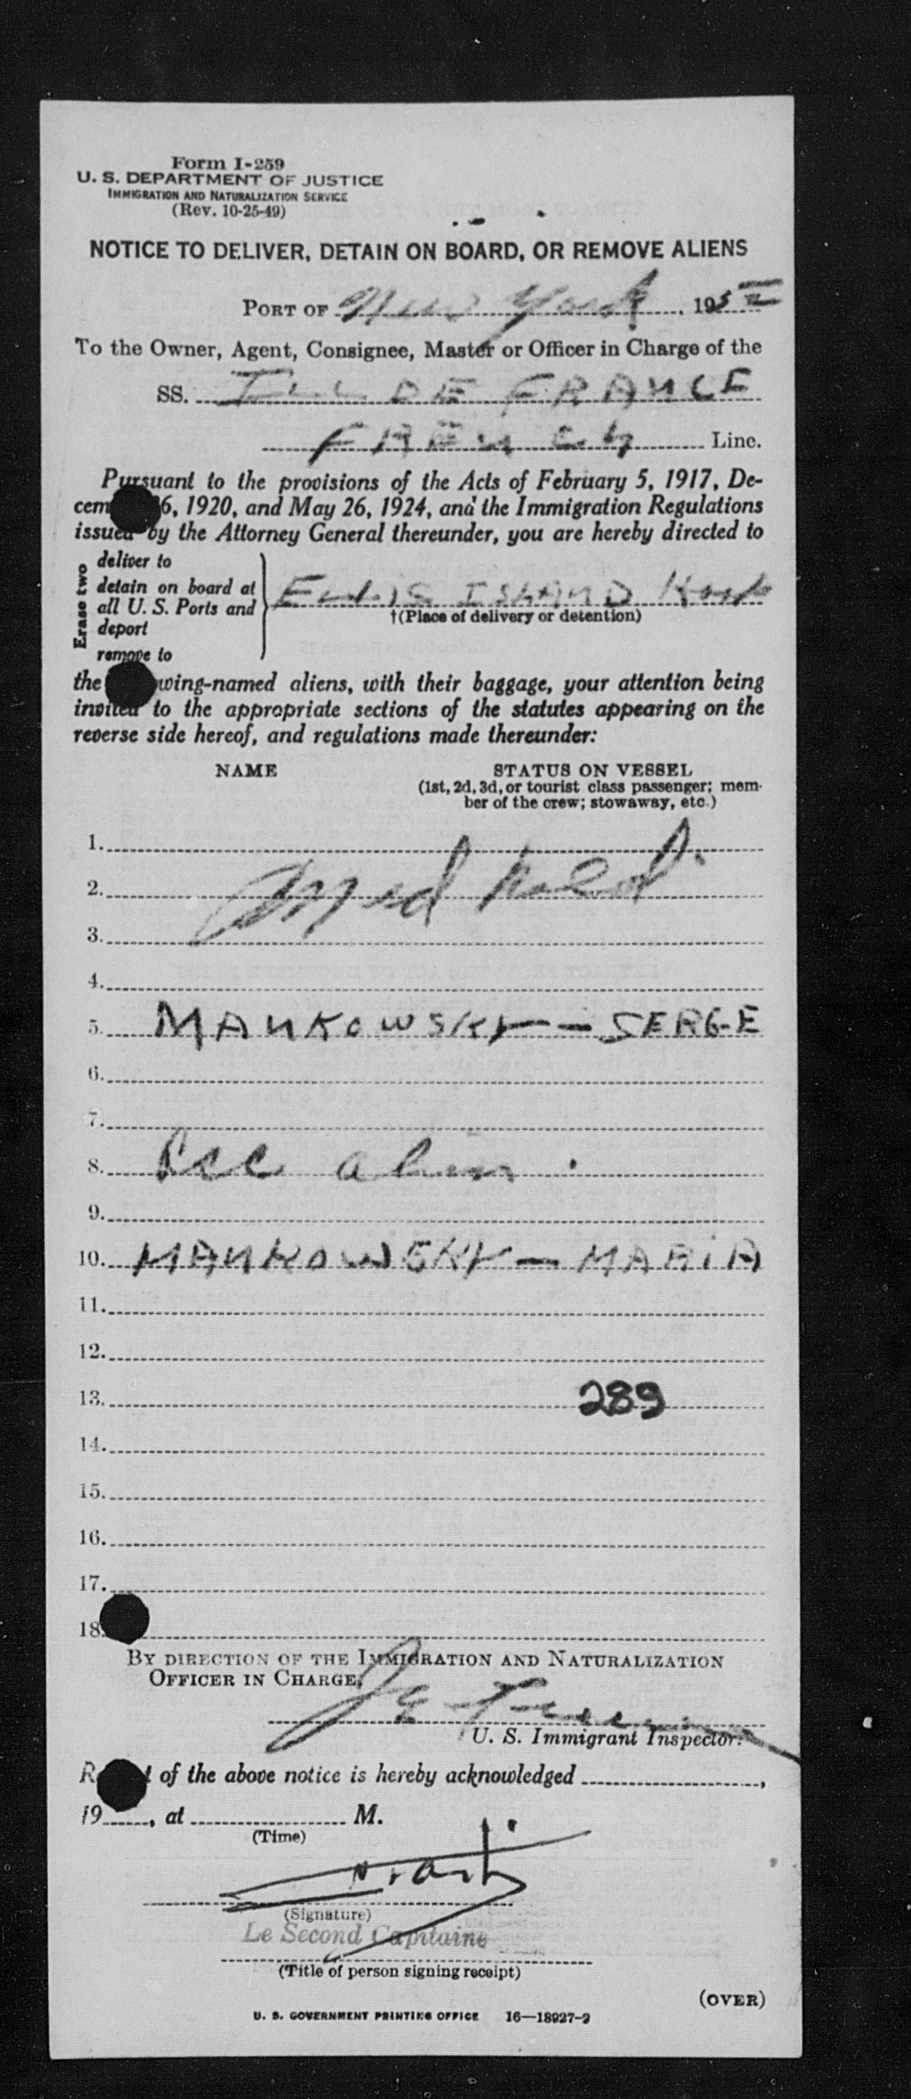 Form I-259
U. S. DEPARTMENT OF JUSTICE
IMMIGRATION AND NATURALIZATION SERVICE
(Rev. 10-25-49)
NOTICE TO DELIVER, DETAIN ON BOARD, OR REMOVE ALIENS
PORT OF New York, 195
To the Owner, Agent, Consignee, Master or Officer in Charge of the
SS. ILL DE FRANCE
FRENCH Line.
Pursuant to the provisions of the Acts of February 5, 1917, De-
cem 6, 1920, and May 26, 1924, and the Immigration Regulations
issued by the Attorney General thereunder, you are hereby directed to
Erase two
deliver to
detain on board at
all U. S. Ports and
deport
remove to
ELLIS ISLAND
†(Place of delivery or detention)
the wing-named aliens, with their baggage, your attention being
invited to the appropriate sections of the statutes appearing on the
reverse side hereof, and regulations made thereunder:
NAME STATUS ON VESSEL
(1st, 2d, 3d, or tourist class passenger; mem-
ber of the crew; stowaway, etc.)
1.
2. Med hold
3.
4.
5. MANKOWSKY — SERGE
6.
7.
8. Acc alien.
9.
10. MANKOWSKY — MARIA
11.
12.
13. 289
14.
15.
16.
17.
18.
BY DIRECTION OF THE IMMIGRATION AND NATURALIZATION
OFFICER IN CHARGE,
U. S. Immigrant Inspector.
R t of the above notice is hereby acknowledged ,
19 , at M.
(Time)
(Signature)
Le Second Capitaine
(Title of person signing receipt)
(OVER)
U. S. GOVERNMENT PRINTING OFFICE 16—18927-2